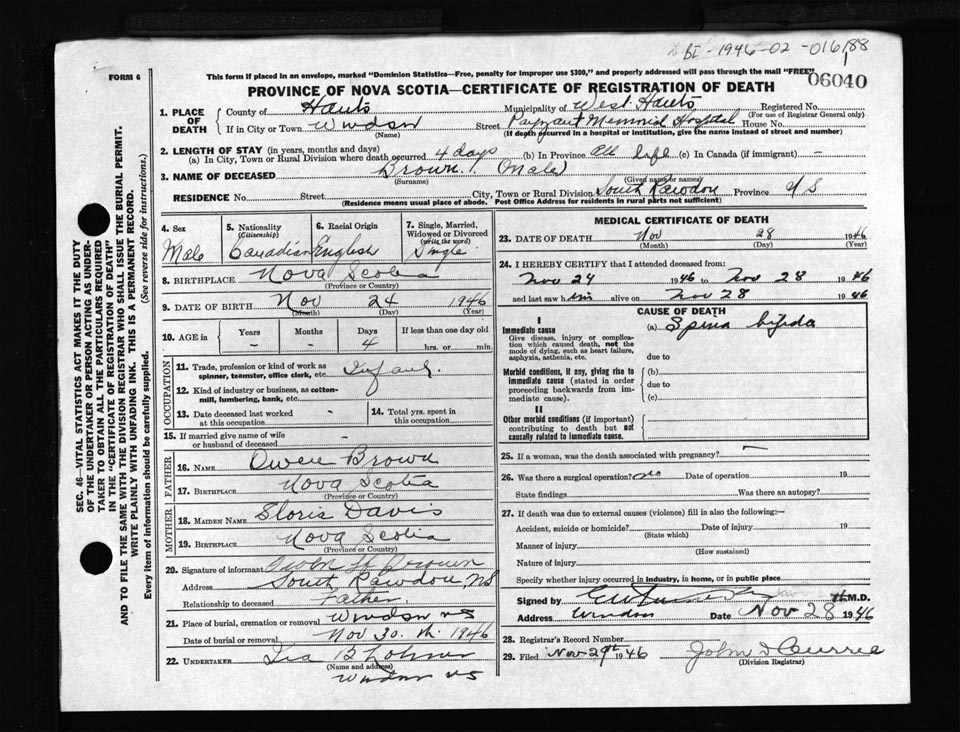 BI-1946-02-016188
FORM 6
This form if placed in an envelope, marked "Dominion Statistics—Free, penalty for improper use $300," and properly addressed will pass through the mail "FREE"
06040
PROVINCE OF NOVA SCOTIA—CERTIFICATE OF REGISTRATION OF DEATH
1. PLACE OF DEATH
County of Hants Municipality of West Hants Registered No.
(For use of Registrar General only)
If in City or Town Windsor Street Payzant Memorial Hospital House No.
(Name) (If death occurred in a hospital or institution, give the name instead of street and number)
2. LENGTH OF STAY (in years, months and days)
(a) In City, Town or Rural Division where death occurred 4 days (b) In Province All life (c) In Canada (if immigrant) —
3. NAME OF DECEASED Brown. (Male)
(Surname) (Given name or names)
RESIDENCE No. Street City, Town or Rural Division South Rawdon Province NS
(Residence means usual place of abode. Post Office Address for residents in rural parts not sufficient)
4. Sex
Male
5. Nationality
(Citizenship)
Canadian
6. Racial Origin
English
7. Single, Married, Widowed or Divorced
(write the word)
Single
8. BIRTHPLACE Nova Scotia
(Province or Country)
9. DATE OF BIRTH Nov 24 1946
(Month) (Day) (Year)
10. AGE in
Years Months Days If less than one day old
— — 4 hrs. or min
OCCUPATION
11. Trade, profession or kind of work as spinner, teamster, office clerk, etc. Infant.
12. Kind of industry or business, as cotton-mill, lumbering, bank, etc.
13. Date deceased last worked at this occupation -
14. Total yrs. spent in this occupation
15. If married give name of wife or husband of deceased -
FATHER
16. NAME Owen Brown
17. BIRTHPLACE Nova Scotia
(Province or Country)
MOTHER
18. MAIDEN NAME Gloria Davis
19. BIRTHPLACE Nova Scotia
(Province or Country)
20. Signature of informant
Address South Rawdon NS
Relationship to deceased Father
21. Place of burial, cremation or removal Windsor NS
Date of burial or removal Nov 30 th. 1946
22. UNDERTAKER Ira B
(Name and address)
Windsor NS
MEDICAL CERTIFICATE OF DEATH
23. DATE OF DEATH Nov 28 1946
(Month) (Day) (Year)
24. I HEREBY CERTIFY that I attended deceased from:
Nov 24 1946 to Nov 28 1946
and last saw him alive on Nov 28 1946
CAUSE OF DEATH
I
Immediate cause (a) Spina bifida
Give disease, injury or complication which caused death, not the mode of dying, such as heart failure, asphyxia, asthenia, etc.
due to
Morbid conditions, if any, giving rise to immediate cause (stated in order proceeding backwards from immediate cause).
(b)
due to
(c)
II
Other morbid conditions (if important) contributing to death but not causally related to immediate cause.
25. If a woman, was the death associated with pregnancy? —
26. Was there a surgical operation? no Date of operation 19
State findings Was there an autopsy?
27. If death was due to external causes (violence) fill in also the following:—
Accident, suicide or homicide? Date of injury 19
(State which)
Manner of injury
(How sustained)
Nature of injury
Specify whether injury occurred in industry, in home, or in public place
Signed by M.D.
Address Windsor Date Nov 28 1946
28. Registrar's Record Number
29. Filed Nov 29th 1946 John D Currie
(Division Registrar)
SEC. 46—VITAL STATISTICS ACT MAKES IT THE DUTY
OF THE UNDERTAKER OR PERSON ACTING AS UNDER-
TAKER TO OBTAIN ALL THE PARTICULARS REQUIRED
IN THE "CERTIFICATE OF REGISTRATION OF DEATH"
AND TO FILE THE SAME WITH THE DIVISION REGISTRAR WHO SHALL ISSUE THE BURIAL PERMIT.
WRITE PLAINLY WITH UNFADING INK. THIS IS A PERMANENT RECORD.
Every item of information should be carefully supplied. (See reverse side for instructions.)